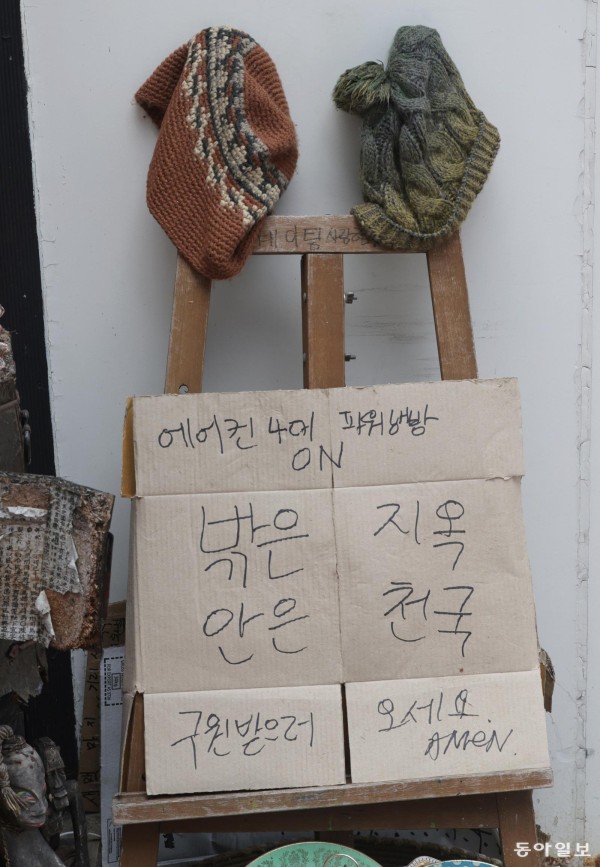 에어컨 4대 파워냉방
ON
밖은 지옥
안은 천국
구원받으러 오세요.
AMEN.
동아일보